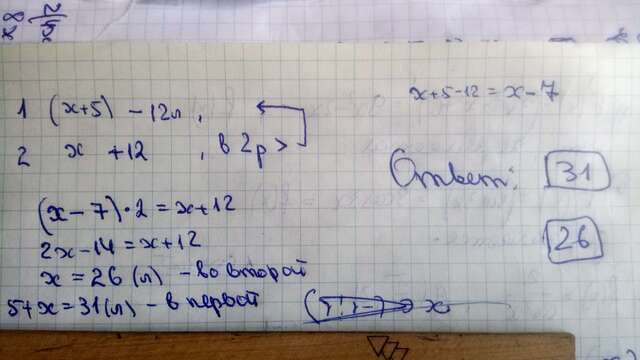 1 (x+5) - 12л,
x+5-12 = x-7
2 x +12 , в 2р >
Ответ: 31
26
(x-7)·2 = x+12
2x-14 = x+12
x = 26 (л) - во второй
5+x = 31 (л) - в первой
x